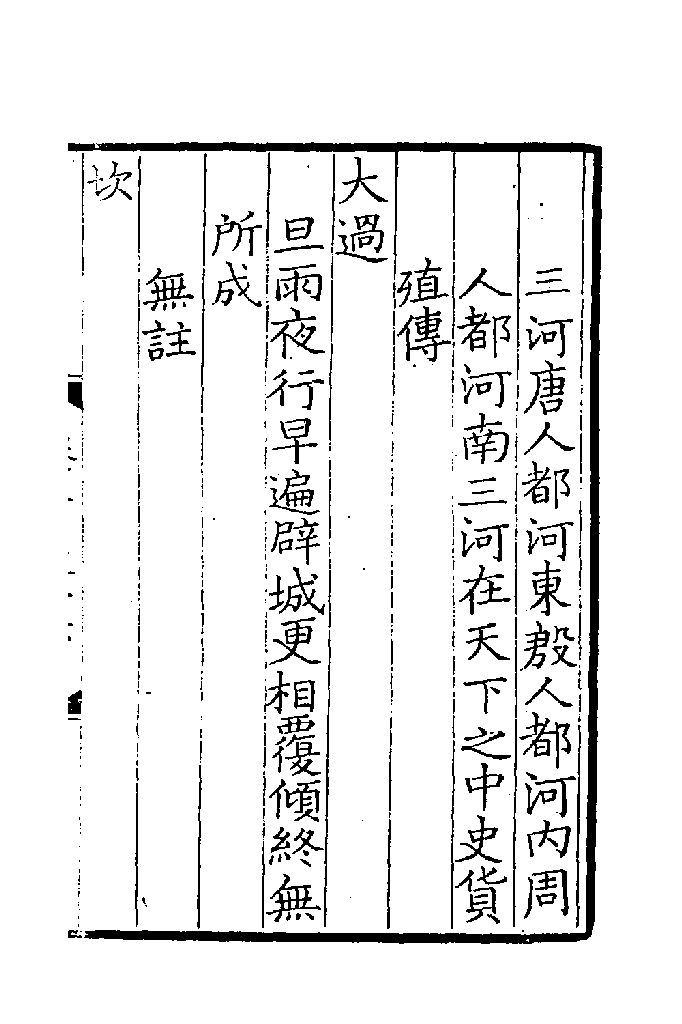 三河唐人都河東殷人都河内周
人都河南三河在天下之中史貨
殖傳
大過
旦雨夜行早遍辟城更相覆傾終無
所成
無註
坎